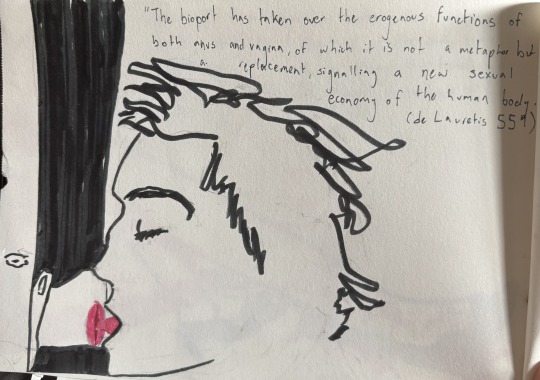 "The bioport has taken over the erogenous functions of
both anus and vagina, of which it is not a metaphor but
a replacement, signalling a new sexual
economy of the human body.
(de Lauretis 559)